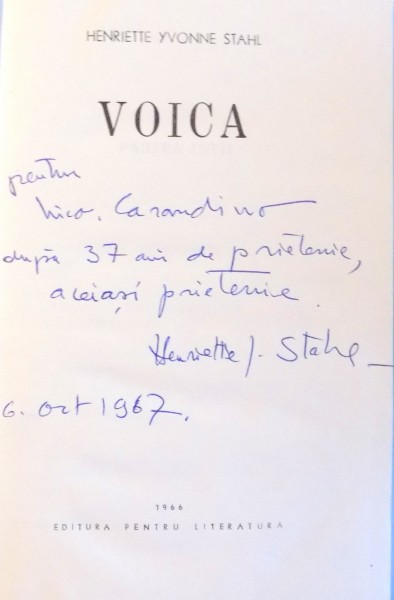 HENRIETTE YVONNE STAHL
VOICA
pentru
Nico. Carandino
după 37 ani de prietenie,
aceiași prietenie.
Henriette Y. Stahl
6. Oct 1967.
1966
EDITURA PENTRU LITERATURA